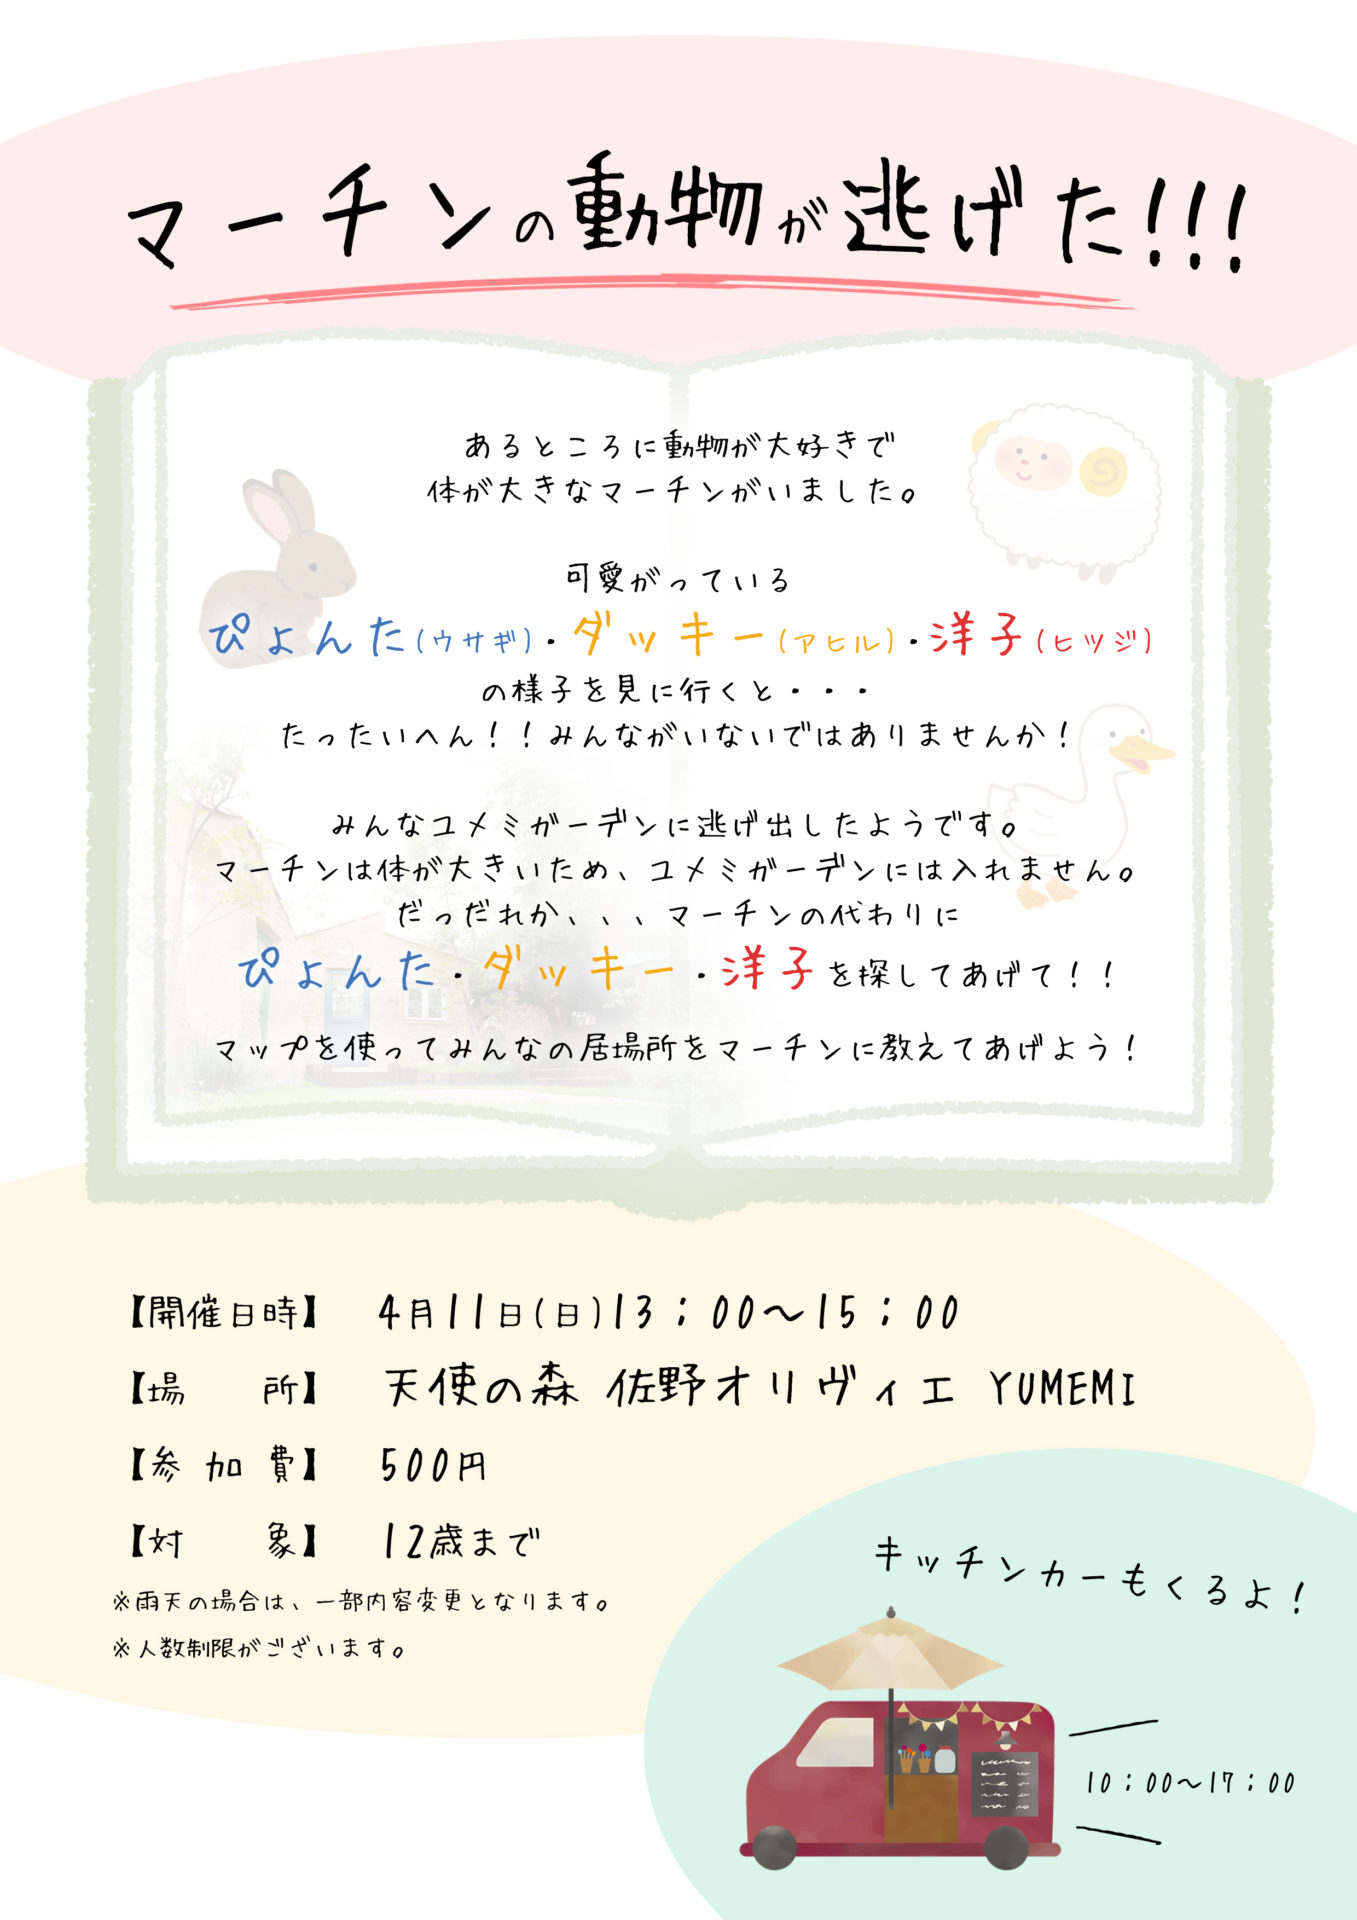 マーチンの動物が逃げた!!!
あるところに動物が大好きで
体が大きなマーチンがいました。
可愛がっている
ぴょんた(ウサギ)・ダッキー(アヒル)・洋子(ヒツジ)
の様子を見に行くと・・・
たったいへん！！みんながいないではありませんか！
みんなユメミガーデンに逃げ出したようです。
マーチンは体が大きいため、ユメミガーデンには入れません。
だっだれか、、、マーチンの代わりに
ぴょんた・ダッキー・洋子を探してあげて！！
マップを使ってみんなの居場所をマーチンに教えてあげよう！
【開催日時】 4月11日(日)13：00〜15：00
【場　　所】 天使の森 佐野オリヴィエ YUMEMI
【参 加 費】 500円
【対　　象】 12歳まで
※雨天の場合は、一部内容変更となります。
※人数制限がございます。
キッチンカーもくるよ！
10：00〜17：00